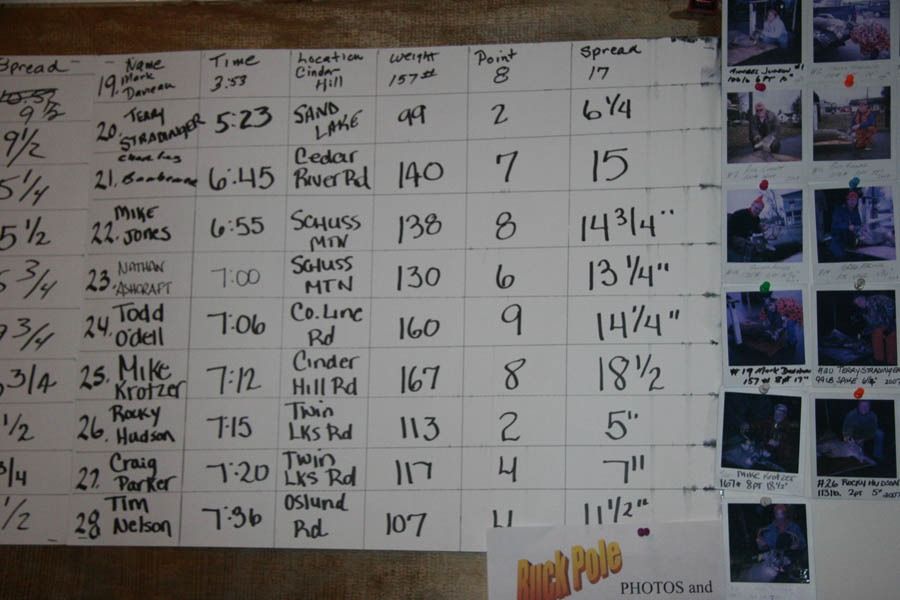 Spread
9 1/2
9 1/2
5 1/4
5 1/2
3/4
9 3/4
3/4
1/2
3/4
1/2
Name Time Location Weight Point Spread
19. Mark 3:53 Cinder Hill 157# 8 17
20. Terry Stradinger 5:23 Sand Lake 99 2 6 1/4
21. Charles 6:45 Cedar River Rd 140 7 15
22. Mike Jones 6:55 Schuss Mtn 138 8 14 3/4"
23. Nathan Ashcraft 7:00 Schuss Mtn 130 6 13 1/4"
24. Todd O'dell 7:06 Co. Line Rd 160 9 14 1/4"
25. Mike Krotzer 7:12 Cinder Hill Rd 167 8 18 1/2
26. Rocky Hudson 7:15 Twin Lks Rd 113 2 5"
27. Craig Parker 7:20 Twin Lks Rd 117 4 7"
28 Tim Nelson 7:36 Oslund Rd 107 4 11 1/2"
Buck Pole
PHOTOS and
#1
6 pt
#19 Mark
157# 8pt 17"
#20 Terry
99 lb Spike 6 1/4" 2007
Mike Krotzer
167# 8pt 18 1/2"
#26 Rocky Hudson
113 lb. 2pt 5" 2007